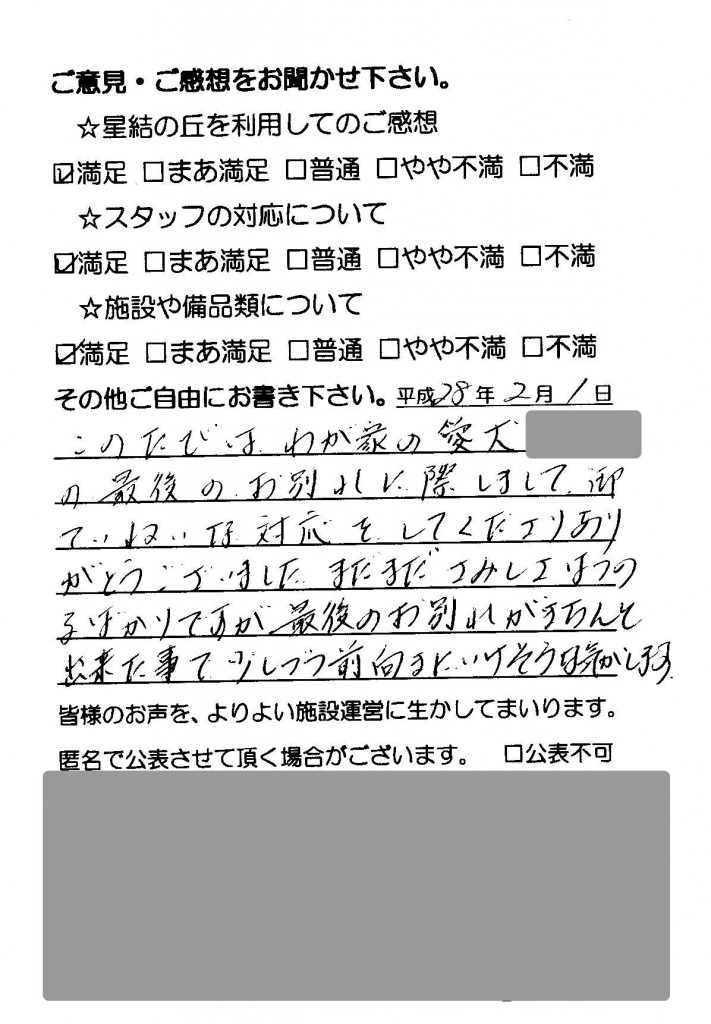 ご意見・ご感想をお聞かせ下さい。
☆星結の丘を利用してのご感想
☑満足 □まあ満足 □普通 □やや不満 □不満
☆スタッフの対応について
☑満足 □まあ満足 □普通 □やや不満 □不満
☆施設や備品類について
☑満足 □まあ満足 □普通 □やや不満 □不満
その他ご自由にお書き下さい。平成28年2月1日
このたびは わが家の愛犬
の最後のお別れに際しまして、御
ていねいな対応をしてくださりあり
がとうございました まだまださみしさはつの
るばかりですが最後のお別れがきちんと
出来た事で少しづつ前向きにいけそうな気がします
皆様のお声を、よりよい施設運営に生かしてまいります。
匿名で公表させて頂く場合がございます。 □公表不可